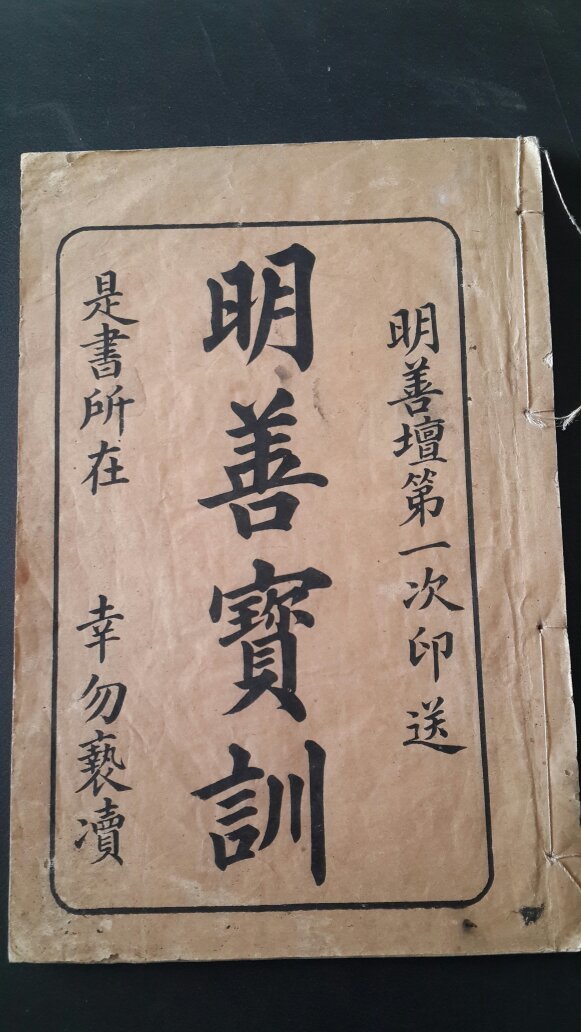 明善壇第一次印送
明善寶訓
是書所在　幸勿褻瀆